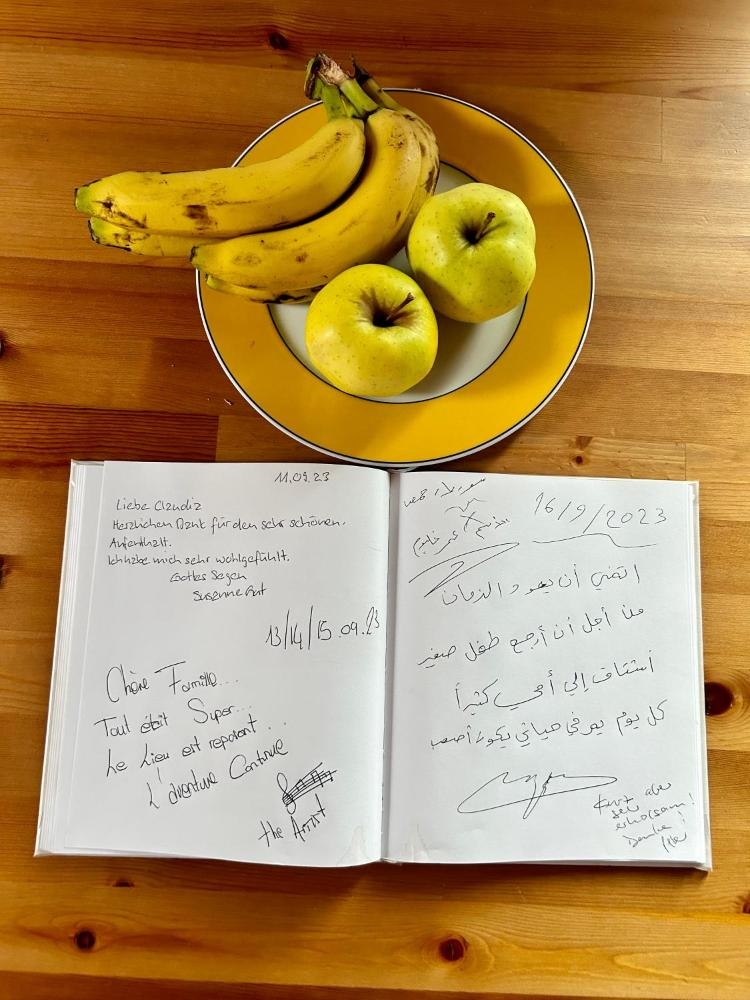 11.09.23
Liebe Claudia
Herzlichen Dank für den sehr schönen.
Aufenthalt.
Ich habe mich sehr wohlgefühlt.
Gottes Segen
Susanne
13/14/15.09.23
Chère Famille...
Tout était Super...
Le Lieu est reposant...
L'aventure Continue
the Artist
16/9/2023
اتمنى أن يعود الزمان
من أجل أن أرجع طفل صغير
أشتاق إلى أمي كثيراً
كل يوم يمر في حياتي يكون أصعب
Kurz aber
sehr
erholsam!
Danke!